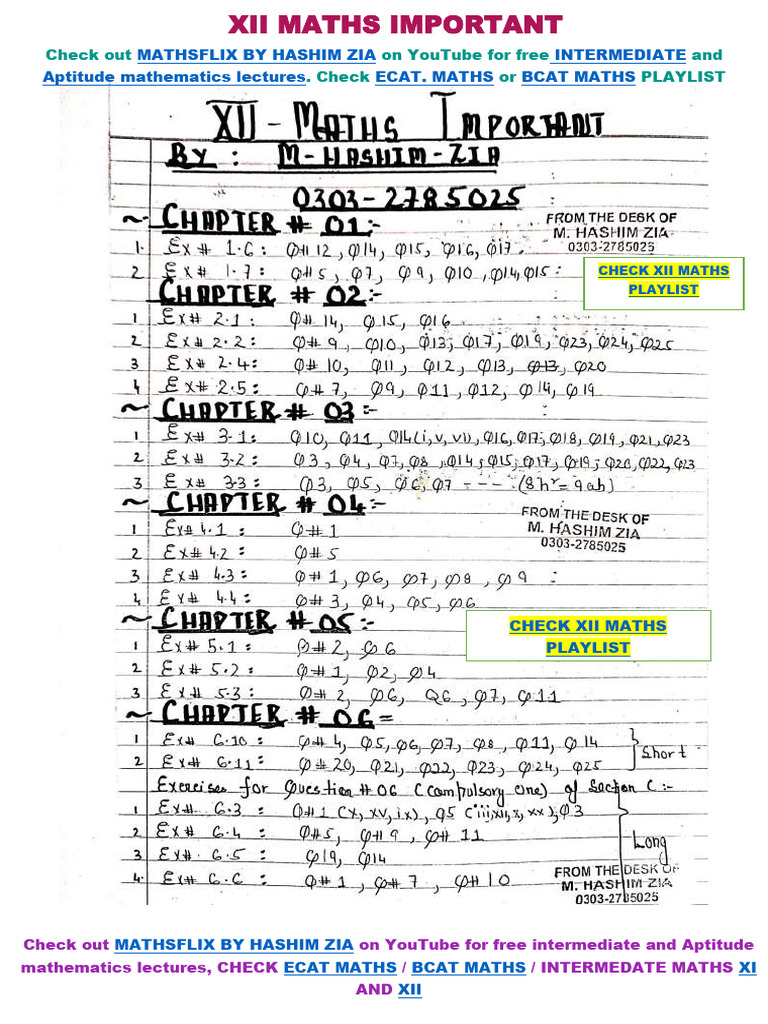 XII MATHS IMPORTANT
Check out MATHSFLIX BY HASHIM ZIA on YouTube for free INTERMEDIATE and
Aptitude mathematics lectures. Check ECAT. MATHS or BCAT MATHS PLAYLIST
XII - MATHS IMPORTANT
BY : M-HASHIM-ZIA
0303-2785025
~ CHAPTER # 01:-
FROM THE DESK OF
M. HASHIM ZIA
0303-2785025
1. Ex # 1.6: Q# 12, Q14, Q15, Q16, Q17.
2 Ex # 1.7: Q# 5, Q7, Q9, Q10, Q14, Q15:
CHECK XII MATHS
PLAYLIST
CHAPTER # 02:-
1 Ex# 2.1: Q# 14, Q15, Q16
2 Ex# 2.2: Q# 9, Q10, Q13, Q17, Q19, Q23, Q24, Q25
3 Ex# 2.4: Q# 10, Q11, Q12, Q13, Q13, Q20
4 Ex# 2.5: Q# 7, Q9, Q11, Q12, Q14, Q19
~ CHAPTER # 03:-
1 Ex# 3.1: Q10, Q11, Q14(i,v,vi), Q16, Q17, Q18, Q19, Q21, Q23
2 Ex# 3.2: Q3, Q4, Q7, Q8, Q14, Q15, Q17, Q19, Q20, Q22, Q23
3 Ex# 3.3: Q3, Q5, Q6, Q7 - - - (8h²=9ab)
~ CHAPTER # 04:-
FROM THE DESK OF
M. HASHIM ZIA
0303-2785025
1 Ex# 4.1: Q# 1
2 Ex# 4.2: Q# 5
3 Ex# 4.3: Q# 1, Q6, Q7, Q8, Q9 :
4 Ex# 4.4: Q# 3, Q4, Q5, Q6
~ CHAPTER # 05:-
CHECK XII MATHS
PLAYLIST
1 Ex# 5.1: Q# 2, Q6
2 Ex# 5.2: Q# 1, Q2, Q4
3 Ex# 5.3: Q# 2, Q6, Q6, Q7, Q11
~ CHAPTER # 06=
1 Ex# 6.10: Q# 4, Q5, Q6, Q7, Q8, Q11, Q14
2 Ex# 6.11: Q# 20, Q21, Q22, Q23, Q24, Q25
Short
Exercises for Question # 06 (Compulsory one) of Section C:-
1 Ex# 6.3: Q# 1 (x, xv, ix), Q5 (iii,xii,x,xx), Q3
2 Ex# 6.4: Q#5, Q#9, Q# 11
3 Ex#. 6.5: Q19, Q14
4. Ex# 6.6: Q# 1, Q# 7, Q# 10
Long
FROM THE DESK OF
M. HASHIM ZIA
0303-2785025
Check out MATHSFLIX BY HASHIM ZIA on YouTube for free intermediate and Aptitude
mathematics lectures, CHECK ECAT MATHS / BCAT MATHS / INTERMEDATE MATHS XI
AND XII